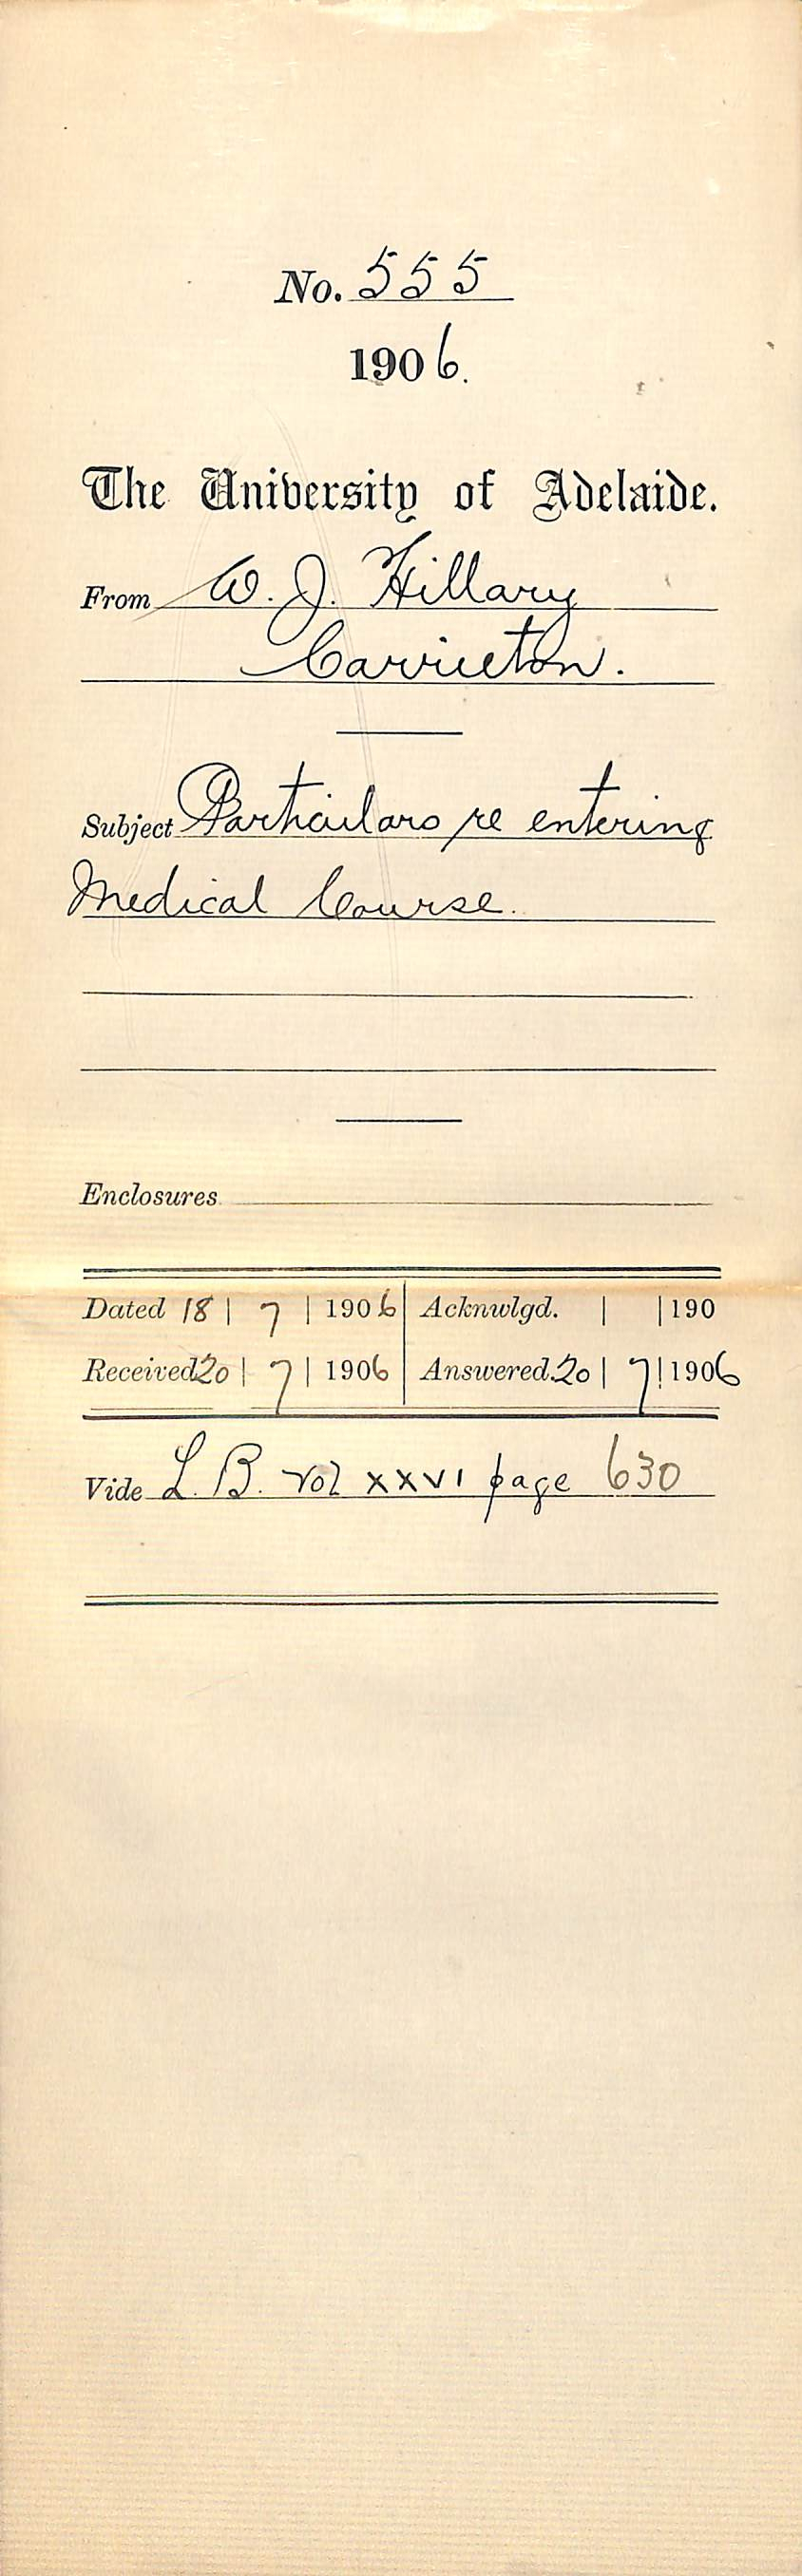 No. 555
1906.
The University of Adelaide.
From W. J. Hillary
Carrieton.
Subject Particulars re entering
Medical Course.
Enclosures
Dated 18 | 7 | 1906 Acknwlgd. | | 190
Received 20 | 7 | 1906 Answered. 20 | 7 | 1906
Vide L. B. Vol XXVI page 630